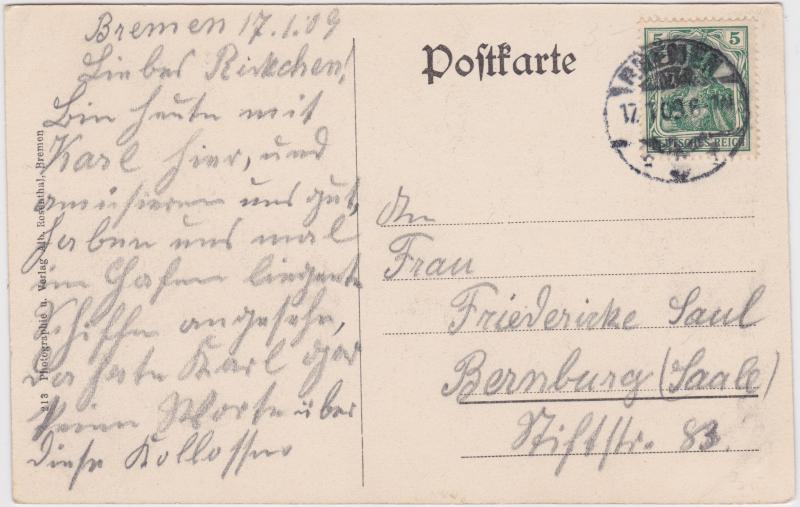 Bremen 17.1.09
Liebes Rickchen!
Bin heute mit
Karl hier, und
amüsieren uns gut,
haben uns mal
im Hafen liegende
Schiffe angesehn,
da hate Karl gar
keine Worte über
diese Kollosse
213 Photographie u. Verlag Alb. Rosenthal, Bremen
Postkarte
BREMEN
17.1.09.6
5 5
DEUTSCHES REICH
An
Frau
Friedericke Saul
Bernburg (Saale)
Stiftstr. 83.